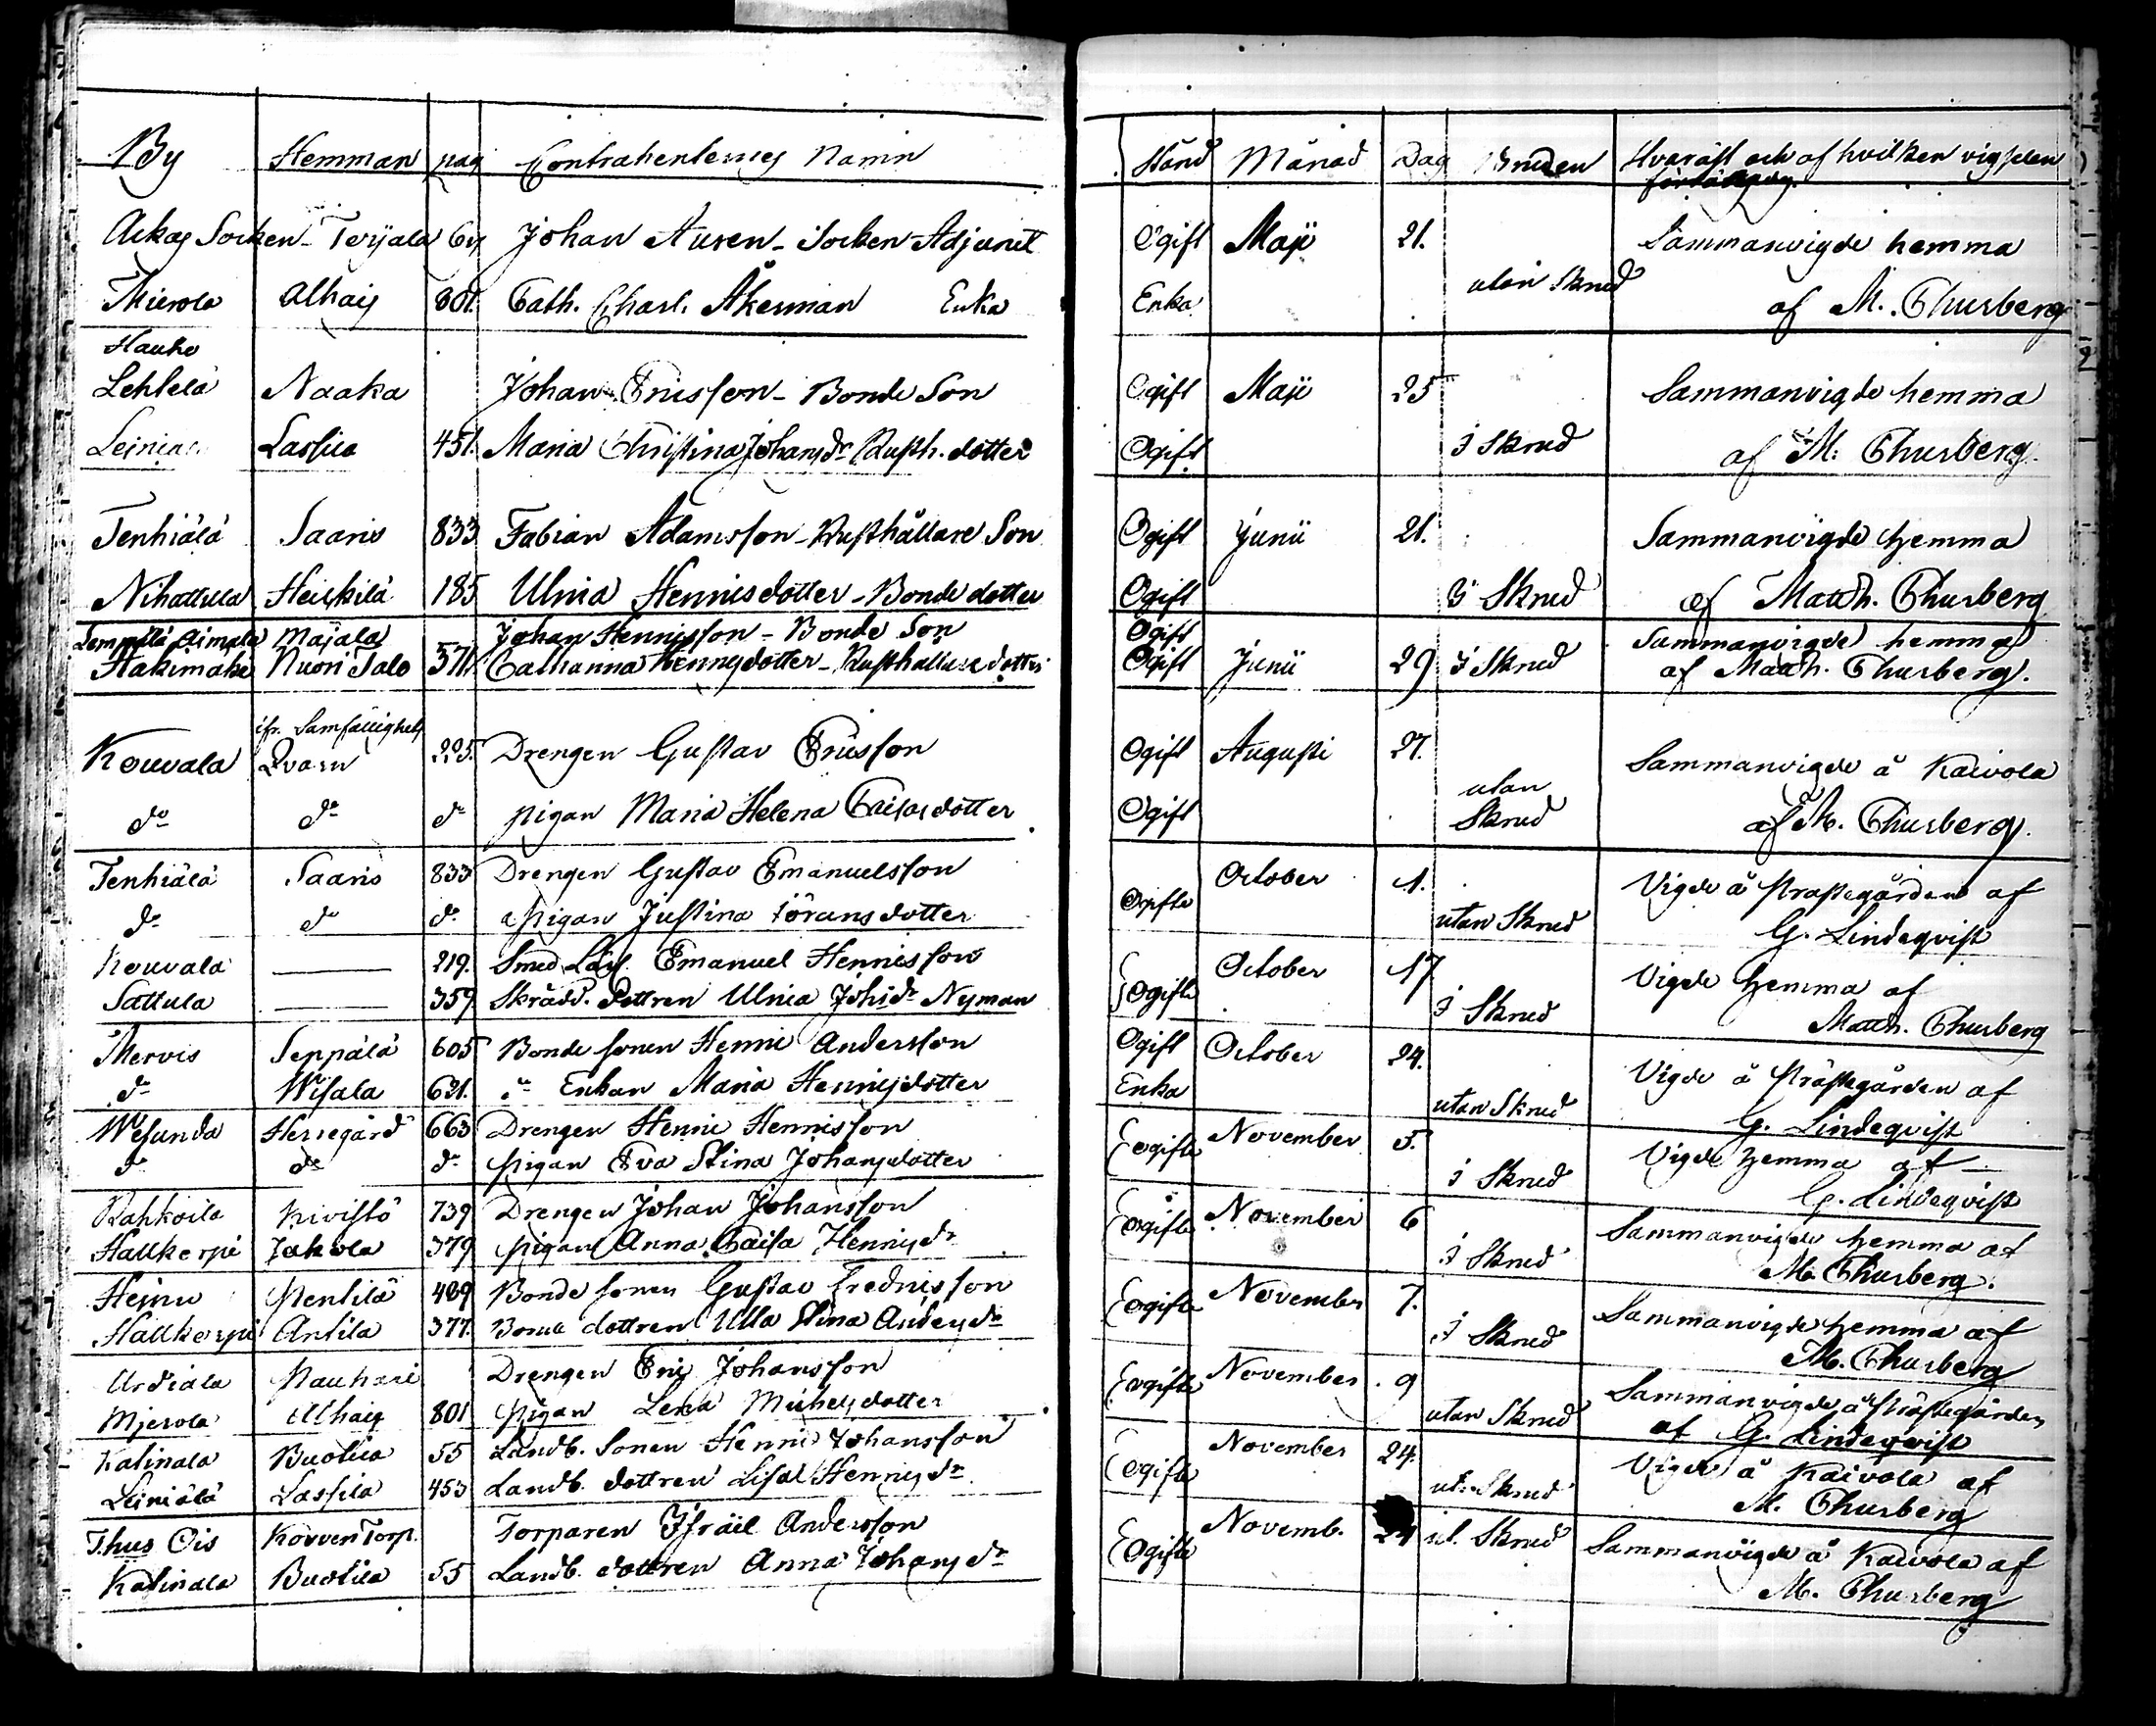 By Hemman pag Contrahenternes Namn Stånd Månad Dag Bruden Hvaräst och af hvilken vigselen
förrättades.
Ackas Socken - Terjala By Johan Auren - Socken Adjunct Ogift Maji 21. Sammanvigde hemma
Mierola Alhais 801. Cath. Charl. Åkerman Enka Enka utan Skrud af M. Thurberg
Hauho
Lehtelä Naaka Johan Ericsson - Bonde Son Ogift Maji 25 Sammanvigde hemma
Leinia Lassila 451. Maria Christina Johansdr Rusth. dotter Ogift i Skrud af M. Thurberg
Tenhiälä Saaris 833 Fabian Adamsson - Rusthållare Son Ogift Junii 21. Sammanvigde hemma
Nihattula Heickilä 185 Ulrica Henricsdotter - Bonde dotter Ogift i Skrud af Matth. Thurberg
Lempälä Aimala Maijala Johan Henricsson - Bonde Son Ogift Sammanvigde hemma
Hakimaki Nuori Talo 571. Catharina Henricsdotter - Rusthållare dotter Ogift Junii 29 i Skrud af Matth. Thurberg.
ifr. Samfällighets
Kouvala Qvarn 225. Drengen Gustav Ericsson Ogift Augusti 27. Sammanvigde å Kaivola
do do do pigan Maria Helena Caisasdotter Ogift utan
Skrud af M. Thurberg.
Tenhiälä Saaris 833 Drengen Gustav Emanuelsson Ogifte October 1. Vigde å prästegården af
do do do pigan Justina Göransdotter utan Skrud G. Lindeqvist
Kouvala — 219. Smed Lärl. Emanuel Henricsson Ogifte October 17 Vigde hemma af
Sattula — 359. Skrädd. Dottren Ulrica Johsdr Nyman i Skrud Matth. Thurberg
Mervis Seppälä 605 Bonde sonen Henric Andersson Ogift October 24. Vigde å Prästegården af
do Wisala 621. do Enkan Maria Henricsdotter Enka utan Skrud G. Lindeqvist
Wesunda Herregård 663 Drengen Henric Henricsson Ogifte November 5. Vigde hemma af
do do do pigan Eva Stina Johansdotter i Skrud G. Lindeqvist
Rahkoila Kivistö 739 Drengen Johan Johansson Ogifte November 6 Sammanvigde hemma af
Hattkorpi Jakola 379 pigan Anna Caisa Henricsdr i Skrud M. Thurberg.
Heinu Pentilä 409 Bonde sonen Gustav Fredricsson Ogifte November 7. Sammanvigde hemma af
Hattkorpi Antila 377. Bonde dottren Ulla Stina Andersdr i Skrud M. Thurberg
Urdiala Nauhari Drengen Eric Johansson Ogifte November 9 Sammanvigde å prästegården
Mjerola Alhais 801 pigan Lena Michelsdotter utan Skrud af G. Lindeqvist
Katinala Buotila 55 Landb. Sonen Henric Johansson Ogifte November 24. Vigde å Kaivola af
Leiniälä Lassila 453 Landb. dottren Lisa Henricsdr ut. Skrud M. Thurberg
T.hus Ois Korven Torp. Torparen Israel Andersson Ogifte Novemb. 24 ut. Skrud Sammanvigde å Kaivola af
Katinala Buotila 55 Landb. dottren Anna Johansdr M. Thurberg